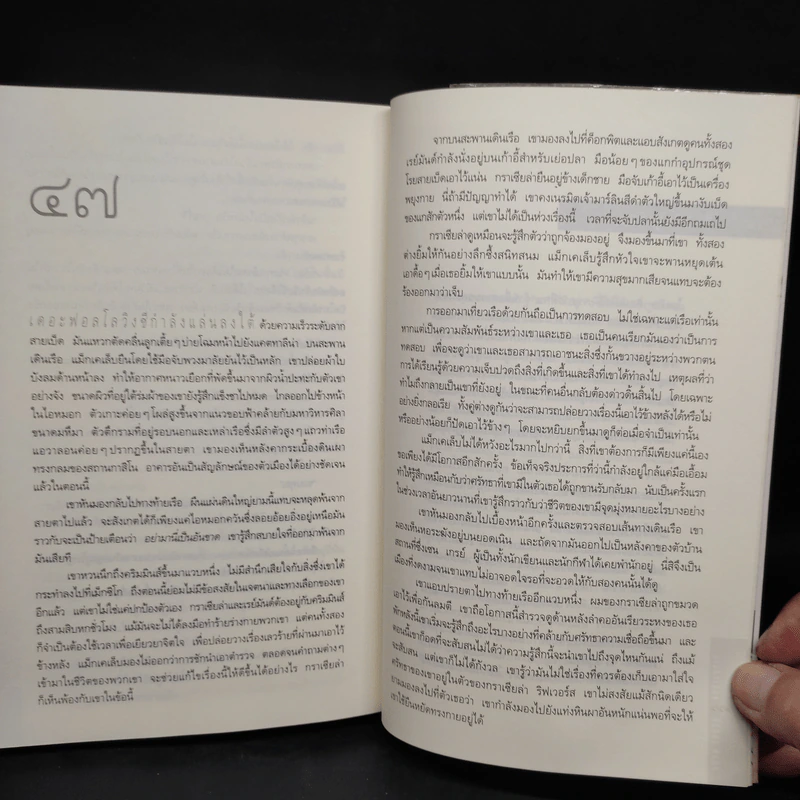 ๔๗
เดอะฟอลโลวิงซีกำลังแล่นลงใต้ ด้วยความเร็วระดับลาก
สายเบ็ด มันแหวกตัดคลื่นลูกเตี้ยๆ บ่ายโฉมหน้าไปยังแคตทาลีน่า บนสะพาน
เดินเรือ แม็กเคเล็บยืนโดยใช้มือจับพวงมาลัยยันไว้เป็นหลัก เขาปล่อยผ้าใบ
บังลมด้านหน้าลง ทำให้อากาศหนาวเยือกที่พัดขึ้นมาจากผิวน้ำปะทะกับตัวเขา
อย่างจัง ขนาดผิวที่อยู่ใต้ร่มผ้าของเขายังรู้สึกแข็งชาไปหมด ไกลออกไปข้างหน้า
ในไอหมอก ตัวเกาะค่อยๆ โผล่สูงขึ้นจากแนวขอบฟ้าคล้ายกับมหาวิหารศิลา
ขนาดมหึมา ตัวตึกรามที่อยู่รอบนอกและเหล่าเรือซึ่งมีลำตัวสูงๆ แถวท่าเรือ
แอวาลอนค่อยๆ ปรากฏขึ้นในสายตา เขามองเห็นหลังคากระเบื้องดินเผา
ทรงกลมของสถานกาสิโน อาคารอันเป็นสัญลักษณ์ของตัวเมืองได้อย่างชัดเจน
แล้วในตอนนี้
เขาหันมองกลับไปทางท้ายเรือ ผืนแผ่นดินใหญ่ยามนี้แทบจะหลุดพ้นจาก
สายตาไปแล้ว จะสังเกตได้ก็เพียงแค่ไอหมอกควันซึ่งลอยอ้อยอิ่งอยู่เหนือมัน
ราวกับจะเป็นป้ายเตือนว่า อย่ามานี่เป็นอันขาด เขารู้สึกสบายใจที่ออกมาพ้นจาก
มันเสียที
เขาหวนนึกถึงคริมมินส์ขึ้นมาแวบหนึ่ง ไม่มีสำนึกเสียใจกับสิ่งซึ่งเขาได้
กระทำลงไปที่เม็กซิโก ถึงตอนนี้ย่อมไม่มีข้อสงสัยในเจตนาและทางเลือกของเขา
อีกแล้ว แต่เขาไม่ใช่แค่ปกป้องตัวเอง กราเซียล่าและเรย์มันด์ต้องอยู่กับคริมมินส์
ถึงสามสิบหกชั่วโมง แม้มันจะไม่ได้ลงมือทำร้ายร่างกายพวกเขา แต่คนทั้งสอง
ก็จำเป็นต้องใช้เวลาเพื่อเยียวยาจิตใจ เพื่อปล่อยวางเรื่องเลวร้ายที่ผ่านมาเอาไว้
ข้างหลัง แม็กเคเล็บมองไม่ออกว่าการชักนำเอาตำรวจ ตลอดจนคำถามต่างๆ
เข้ามาในชีวิตของพวกเขา จะช่วยแก้ไขเรื่องนี้ให้ดีขึ้นได้อย่างไร กราเซียล่า
ก็เห็นพ้องกับเขาในข้อนี้
จากบนสะพานเดินเรือ เขามองลงไปที่ค็อกพิตและแอบสังเกตดูคนทั้งสอง
เรย์มันด์กำลังนั่งอยู่บนเก้าอี้สำหรับเย่อปลา มือน้อยๆ ของแกกำอุปกรณ์ชุด
โรยสายเบ็ดเอาไว้แน่น กราเซียล่ายืนอยู่ข้างเด็กชาย มือจับเก้าอี้เอาไว้เป็นเครื่อง
พยุงกาย นี่ถ้ามีปัญญาทำได้ เขาคงเนรมิตเจ้ามาร์ลินสีดำตัวใหญ่ขึ้นมางับเบ็ด
ของแกสักตัวหนึ่ง แต่เขาไม่ได้เป็นห่วงเรื่องนี้ เวลาที่จะจับปลานั้นยังมีอีกถมเถไป
กราเซียล่าดูเหมือนจะรู้สึกตัวว่าถูกจ้องมองอยู่ จึงมองขึ้นมาที่เขา ทั้งสอง
ต่างยิ้มให้กันอย่างลึกซึ้งสนิทสนม แม็กเคเล็บรู้สึกหัวใจเขาจะพานหยุดเต้น
เอาดื้อๆ เมื่อเธอยิ้มให้เขาแบบนั้น มันทำให้เขามีความสุขมากเสียจนแทบจะต้อง
ร้องออกมาว่าเจ็บ
การออกมาเที่ยวเรือด้วยกันถือเป็นการทดสอบ ไม่ใช่เฉพาะแต่เรือเท่านั้น
หากแต่เป็นความสัมพันธ์ระหว่างเขาและเธอ เธอเป็นคนเรียกมันเองว่าเป็นการ
ทดสอบ เพื่อจะดูว่าเขาและเธอสามารถเอาชนะสิ่งซึ่งกั้นขวางอยู่ระหว่างพวกตน
การได้เรียนรู้ด้วยความเจ็บปวดถึงสิ่งที่เกิดขึ้นและสิ่งที่เขาได้ทำลงไป เหตุผลที่ว่า
ทำไมถึงกลายเป็นเขาที่ยังอยู่ ในขณะที่คนอื่นกลับต้องด่าวดิ้นสิ้นไป โดยเฉพาะ
อย่างยิ่งกลอเรีย ทั้งคู่ต่างดูกันว่าจะสามารถปล่อยวางเรื่องนี้เอาไว้ข้างหลังได้หรือไม่
หรืออย่างน้อยก็ปิดเอาไว้ข้างๆ โดยจะหยิบยกขึ้นมาดูก็ต่อเมื่อจำเป็นเท่านั้น
แม็กเคเล็บไม่ได้หวังอะไรมากไปกว่านี้ สิ่งที่เขาต้องการก็มีเพียงแค่นี้เอง
ขอเพียงได้มีโอกาสอีกสักครั้ง ข้อเท็จจริงประการที่ว่านี้กำลังอยู่ใกล้แค่มือเอื้อม
ทำให้รู้สึกเหมือนกับว่าศรัทธาที่เขามีในตัวเธอได้ถูกขานรับกลับมา นับเป็นครั้งแรก
ในช่วงเวลาอันยาวนานที่เขารู้สึกราวกับว่าชีวิตของเขามีจุดมุ่งหมายอะไรบางอย่าง
เขาหันมองกลับไปเบื้องหน้าอีกครั้งและตรวจสอบเส้นทางเดินเรือ เขา
มองเห็นหอระฆังอยู่บนยอดเนิน และถัดจากมันออกไปเป็นหลังคาของตัวบ้าน
สถานที่ซึ่งเซน เกรย์ ผู้เป็นทั้งนักเขียนและนักกีฬาได้เคยพำนักอยู่ นี่สิจึงเป็น
เมืองที่งดงามจนเขาแทบไม่อาจอดใจรอที่จะอวดให้กับสองคนนั้นได้ดู
เขาแอบปรายตาไปทางท้ายเรืออีกแวบหนึ่ง ผมของกราเซียล่าถูกขมวด
เอาไว้เพื่อกันลมตี เขาถือโอกาสนี้สำรวจดูด้านหลังลำคออันเรียวระหงของเธอ
พักหลังนี้เขาเริ่มจะรู้สึกถึงอะไรบางอย่างที่คล้ายกับศรัทธาความเชื่อถือขึ้นมา และ
ตอนนี้เขาก็อดที่จะสับสนไม่ได้ว่าความรู้สึกนี้จะนำเขาไปถึงจุดไหนกันแน่ ถึงแม้
จะสับสน แต่เขาก็ไม่ได้กังวล เขารู้ว่ามันไม่ใช่เรื่องที่ควรต้องเก็บเอามาใส่ใจ
ศรัทธาของเขาอยู่ในตัวของกราเซียล่า ริฟเวอร์ส เขาไม่สงสัยแม้สักนิดเดียว
ยามมองลงไปที่ตัวเธอว่า เขากำลังมองไปยังแท่งหินผาอันหนักแน่นพอที่จะให้
เขาใช้ยืนหยัดทรงกายอยู่ได้